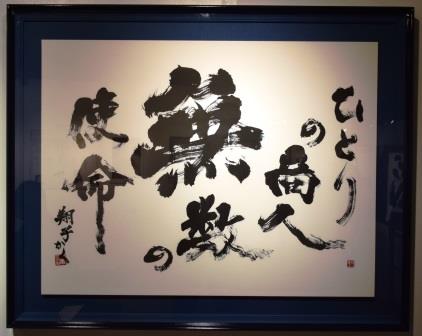 ひとり
の商人
無数の
使命
翔子かく